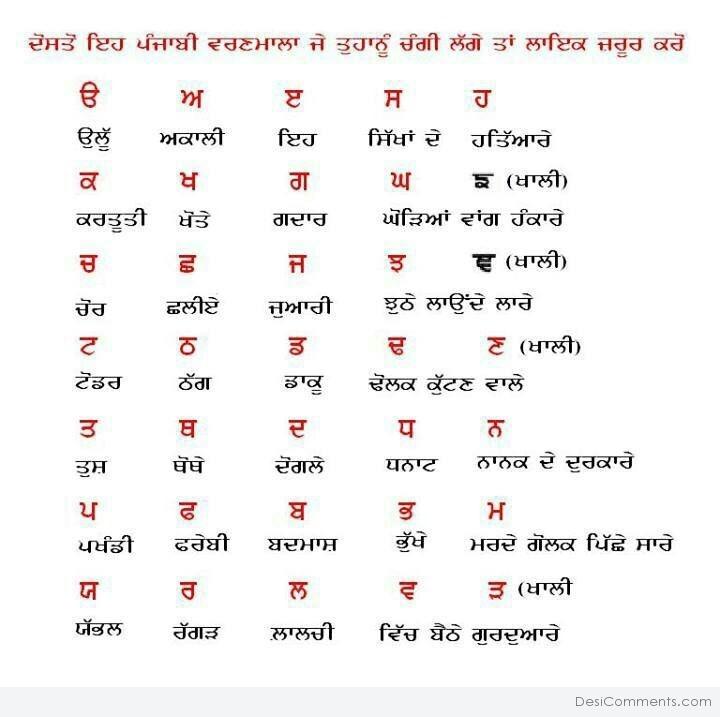 ਦੋਸਤੋਂ ਇਹ ਪੰਜਾਬੀ ਵਰਣਮਾਲਾ ਜੇ ਤੁਹਾਨੂੰ ਚੰਗੀ ਲੱਗੇ ਤਾਂ ਲਾਇਕ ਜ਼ਰੂਰ ਕਰੋਂ
ੳ ਅ ੲ ਸ ਹ
ਉਲੂੱ ਅਕਾਲੀ ਇਹ ਸਿੱਖਾਂ ਦੇ ਹਤਿੱਆਰੇ
ਕ ਖ ਗ ਘ ਙ (ਖਾਲੀ)
ਕਰਤੂਤੀ ਖੋਂਤੇ ਗਦਾਰ ਘੋੜਿਆਂ ਵਾਂਗ ਹੰਕਾਰੇ
ਚ ਛ ਜ ਝ ਞ (ਖਾਲੀ)
ਚੋਰ ਛਲੀਏ ਜੁਆਰੀ ਝੁਠੇ ਲਾਉਂਦੇ ਲਾਰੇ
ਟ ਠ ਡ ਢ ਣ (ਖਾਲੀ)
ਟੋਡਰ ਠੱਗ ਡਾਕੂ ਢੋਲਕ ਕੁੱਟਣ ਵਾਲੇ
ਤ ਥ ਦ ਧ ਨ
ਤੁਸ਼ ਥੋਥੇ ਦੋਂਗਲੇ ਧਨਾਟ ਨਾਨਕ ਦੇ ਦੁਰਕਾਰੇ
ਪ ਫ ਬ ਭ ਮ
ਪਖੰਡੀ ਫਰੇਬੀ ਬਦਮਾਸ਼ ਭੁੱਖੇ ਮਰਦੇ ਗੋਲਕ ਪਿੱਛੇ ਸਾਰੇ
ਯ ਰ ਲ ਵ ੜ (ਖਾਲੀ
ਯੱਭਲ ਰੱਗੜ ਲਾਲਚੀ ਵਿੱਚ ਬੈਠੇ ਗੁਰਦੁਆਰੇ
DesiComments.com